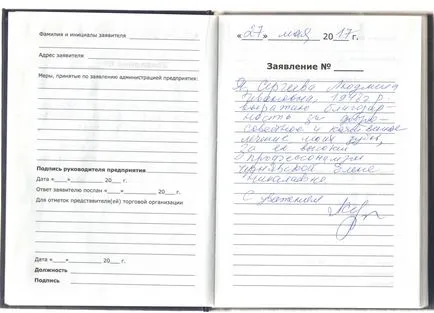 Фамилия и инициалы заявителя
Адрес заявителя
Меры, принятые по заявлению администрацией предприятия
Подпись руководителя предприятия
Дата «___»__________ 20___ г.
Ответ заявителю послан «___»__________ 20___ г.
Для отметок представителя(ей) торговой организации
Дата «___»__________ 20___ г.
Должность
Подпись
«27» мая 2017 г.
Заявление №
Я, Сергеева Людмила
Ивановна, 1946 г р.
выражаю благодар
ность за добро-
совестное и качественное
лечение моих зубов,
за ее высокий
профессионализм
Елене
Николаевне.
С уважением